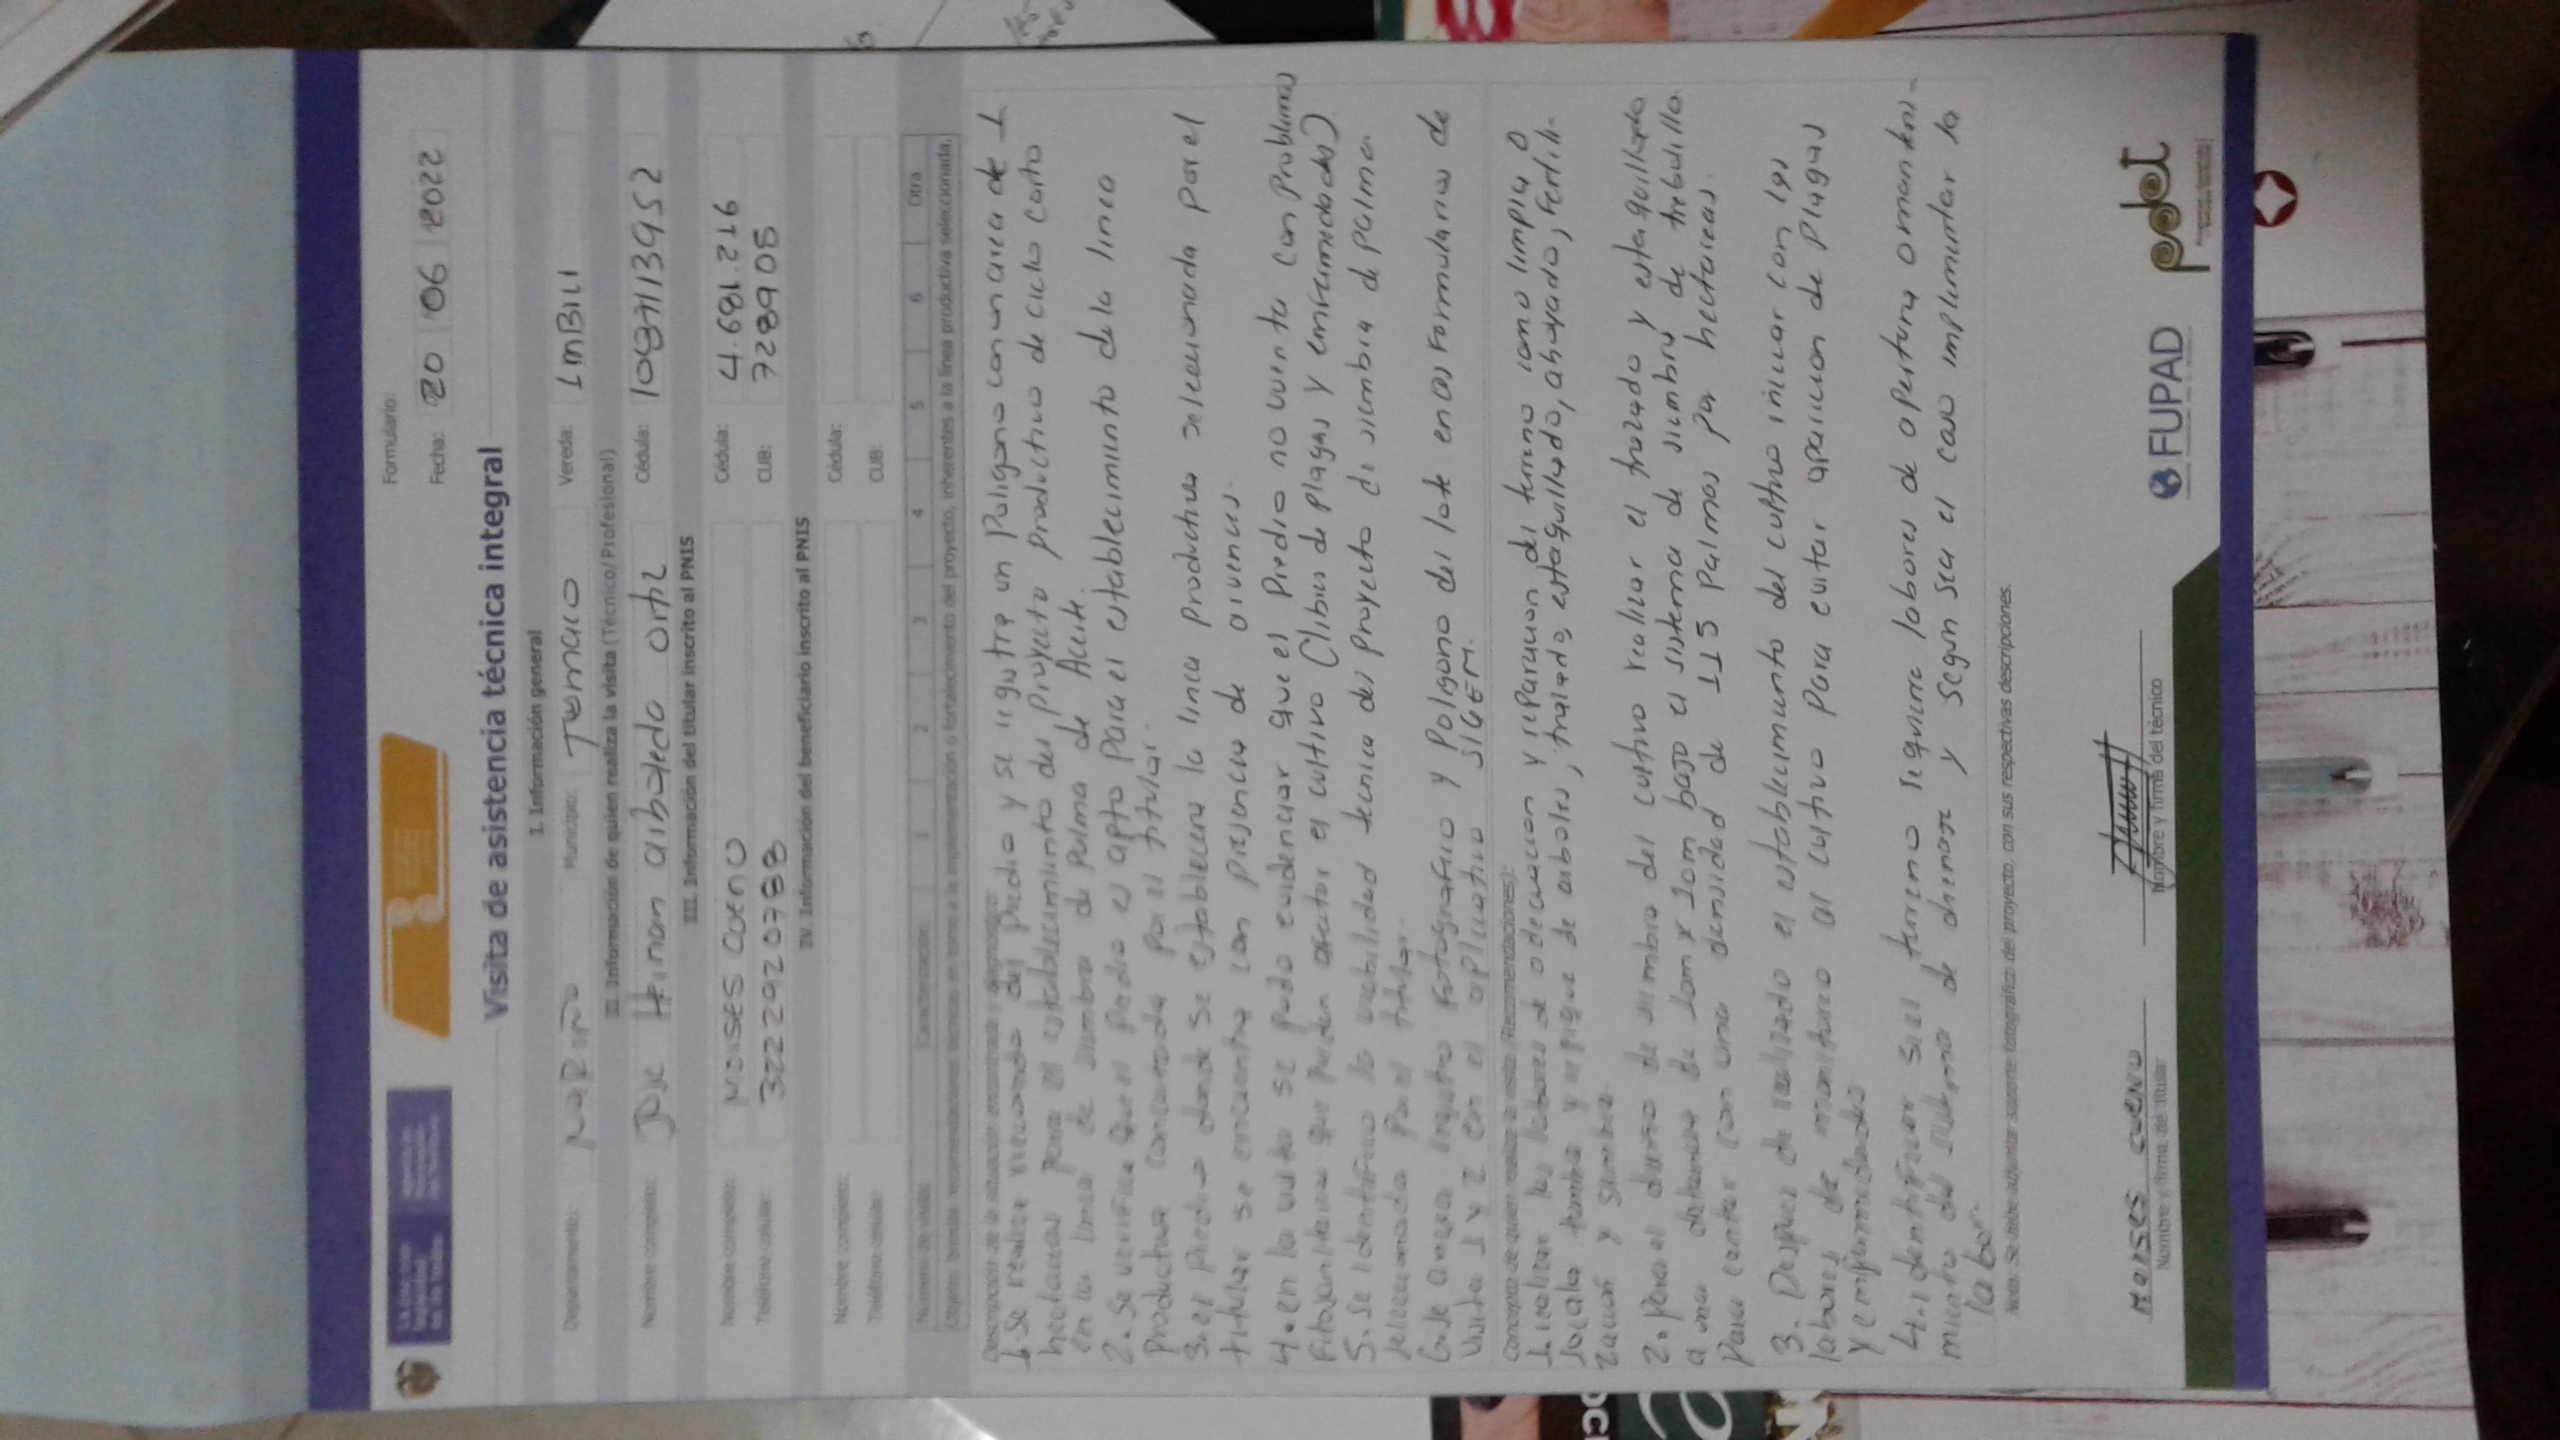 Formulario:
Fecha: 20 06 2022
Visita de asistencia técnica integral
I. Información general
Departamento: NARIÑO Municipio: Tumaco Vereda: IMBILI
II. Información de quien realiza la visita (Técnico/Profesional)
Nombre completo: Jose Hernan arboleda ortiz Cédula: 1087113952
III. Información del titular inscrito al PNIS
Nombre completo: MOISES CUENO Cédula: 4.681.216
Teléfono celular: 3222920788 CUB: 7289 05
IV. Información del beneficiario inscrito al PNIS
Nombre completo: Cédula:
Teléfono celular: CUB:
Número de visita: Caracterización: 1 2 3 4 5 6 Otra
Objeto: brindar recomendaciones técnicas en torno a la implementación o fortalecimiento del proyecto, inherentes a la línea productiva seleccionada.
Descripción de la situación encontrada y diagnóstico:
1. Se realiza recorrido del predio y se registra un poligono con un area de 1
hectareas para el establecimiento del proyecto productivo de ciclo corto
en la linea de siembra de palma de Aceite.
2. Se verifica que el predio es apto para el establecimiento de la linea
productiva concertada por el titular.
3. el predio donde se establecera la linea productiva seleccionada por el
titular se encuentra con presencia de arvences.
4. en la visita se pudo evidenciar que el predio no cuenta con problemas
Fitosanitarios que puedan afectar el cultivo (libres de plagas y enfermedades)
5. se identifico la viabilidad tecnica del proyecto de siembra de palma
seleccionada por el titular.
6. se anexa registro fotografico y poligono del lote en los formularios de
visita 1 y 2 en el aplicativo SIGEM.
Concepto de quien realiza la visita (Recomendaciones):
1. realizar las labores de adecuacion y reparacion del terreno como limpia o
socala tumba y repique de arboles, trazado, estaquillado, ahoyado, fertili-
zacion y siembra.
2. para el diseño de siembra del cultivo realizar el trazado y estaquillado
a una distancia de 10m x 10m bajo el sistema de siembra de trebolillo
para contar con una densidad de 115 palmas por hectareas.
3. Despues de realizado el establecimiento del cultivo iniciar con las
labores de monitoreo al cultivo para evitar aparicion de plagas
y enfermedades
4. identificar si el terreno requiere labores de apertura o manteni-
miento del sistema de drenaje y segun sea el caso implementar la
labor
Nota: Se debe adjuntar soporte fotográfico del proyecto, con sus respectivas descripciones.
MOISES CUENO
Nombre y firma del titular
Nombre y firma del técnico
FUPAD
pdet